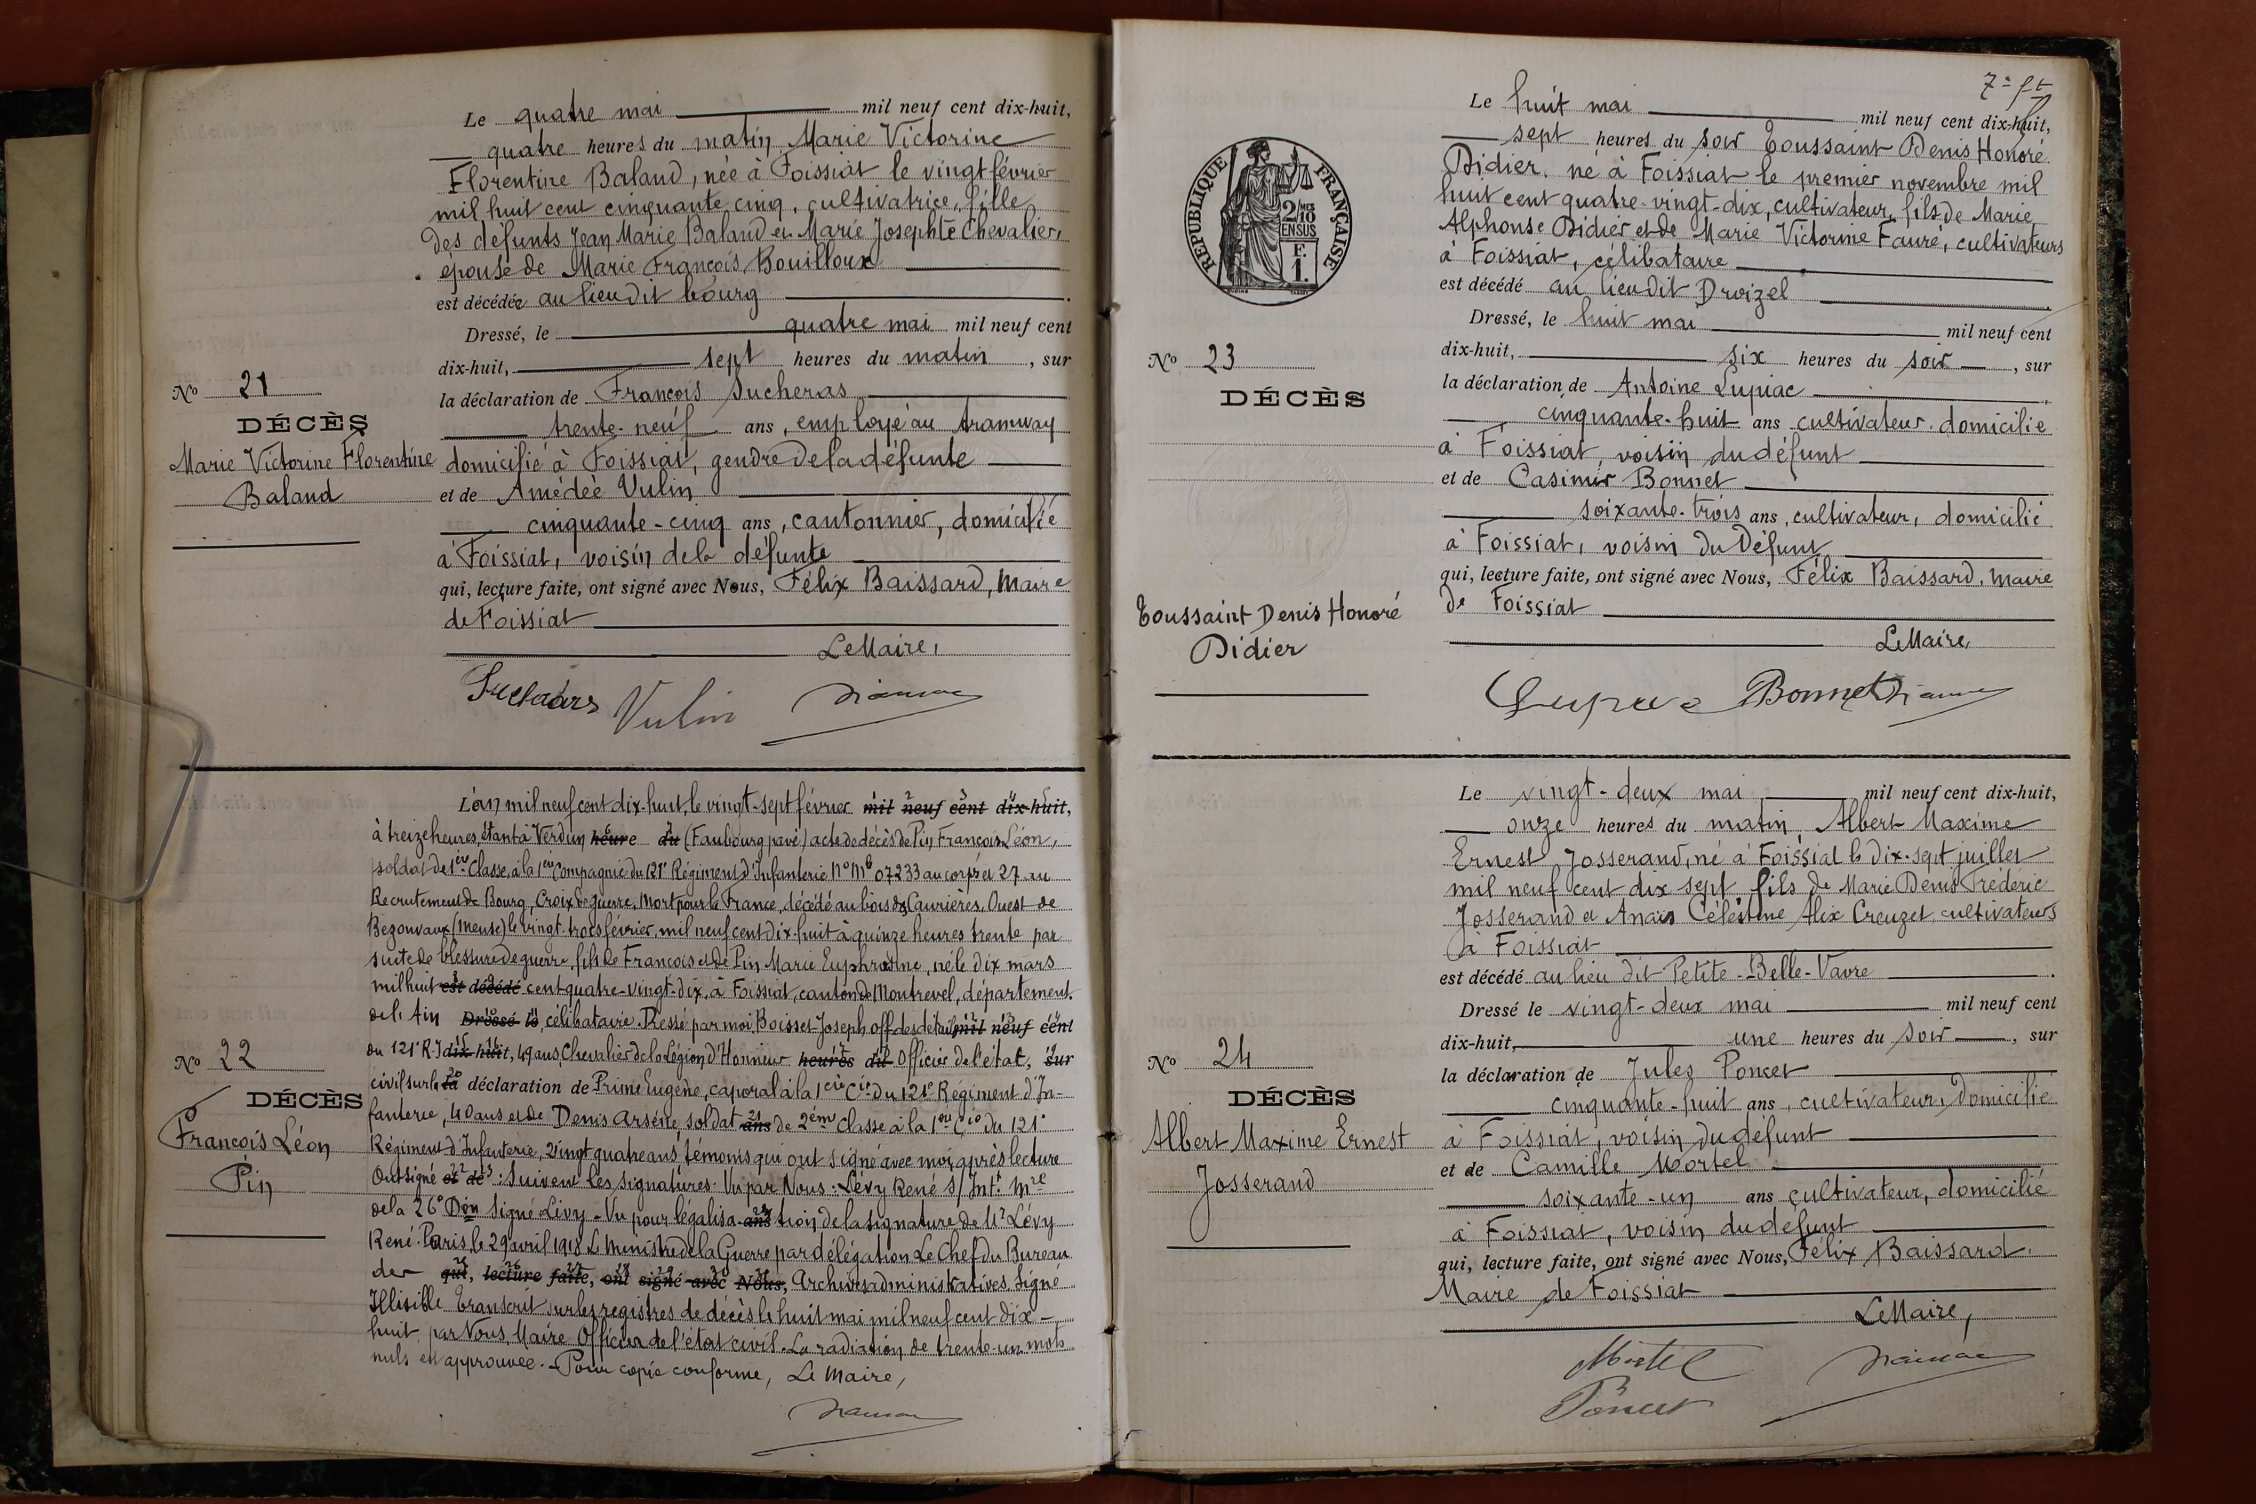 Le quatre mai mil neuf cent dix-huit,
quatre heures du matin, Marie Victorine
Florentine Baland, née à Foissiat le vingt février
mil huit cent cinquante cinq, cultivatrice, fille
des défunts Jean Marie Baland et Marie Josephte Chevalier,
épouse de Marie François Bouilloux
est décédée au lieu dit bourg
Dressé, le quatre mai mil neuf cent
dix-huit, sept heures du matin, sur
la déclaration de François Sucheras
trente-neuf ans, employé au tramway
domicilié à Foissiat, gendre de la défunte
et de Amédée Vulin
cinquante-cinq ans, cantonnier, domicilié
à Foissiat, voisin de la défunte
qui, lecture faite, ont signé avec Nous, Félix Baissard, Maire
de Foissiat
Le Maire,
Vulin
No 21
DÉCÈS
Marie Victorine Florentine
Baland
L'an mil neuf cent dix-huit, le vingt-sept février mil neuf cent dix-huit,
à treize heures, étant à Verdun heure du (Faubourg pavé) acte de décès de Pin François Léon,
soldat de 1ère Classe, à la 1ère Compagnie du 121e Régiment d'Infanterie No Mle 07233 au corps et 27 au
Recrutement de Bourg, Croix de guerre, Mort pour la France, décédé au bois des Caurières Ouest de
Bezonvaux (Meuse) le vingt-trois février mil neuf cent dix-huit à quinze heures trente par
suite de blessure de guerre, fils de François et de Pin Marie Euphrasine, né le dix mars
mil huit est décédé cent quatre-vingt-dix, à Foissiat, canton de Montrevel, département
de l'Ain Dressé le, célibataire. Dressé par moi, Boisset Joseph, off. des détails mil neuf cent
du 121e R.I dix-huit, 49 ans, Chevalier de la Légion d'Honneur heures du Officier de l'état, sur
civil sur la la déclaration de Prime Eugène, caporal à la 1ère Cie du 121e Régiment d'In-
fanterie, 40 ans et de Denis Arsène, soldat ans de 2ème Classe à la 1ère Cie du 121e
Régiment d'Infanterie, vingt quatre ans, témoins qui ont signé avec moi, après lecture
Ont signé et de : Suivent les signatures. Vu par Nous : Lévy René s/Int. Mre
de la 26e Don Signé Lévy - Vu pour légalisa- ans tion de la signature de Mr Lévy
René. Paris, le 29 avril 1918 Le Ministre de la Guerre par délégation Le Chef du Bureau
des qui, lecture faite, ont signé avec Nous, Archives administratives. Signé
Illisible Transcrit sur les registres de décès le huit mai mil neuf cent dix-
huit par Nous, Maire Officier de l'état civil. La radiation de trente-un mots
nuls est approuvée. - Pour copie conforme, Le Maire,
No 22
DÉCÈS
François Léon
Pin
7e ft
Le huit mai mil neuf cent dix-huit,
sept heures du soir Toussaint Denis Honoré
Didier. né à Foissiat le premier novembre mil
huit cent quatre-vingt-dix, cultivateur, fils de Marie
Alphonse Didier et de Marie Victorine Fauré, cultivateurs
à Foissiat, célibataire
est décédé au lieu dit Droizel
Dressé, le huit mai mil neuf cent
dix-huit, six heures du soir, sur
la déclaration de Antoine Lupiac
cinquante-huit ans cultivateur. domicilié
à Foissiat, voisin du défunt
et de Casimir Bonnet
soixante-trois ans, cultivateur, domicilié
à Foissiat, voisin du Défunt
qui, lecture faite, ont signé avec Nous, Félix Baissard, Maire
de Foissiat
Le Maire,
Bonnet
RÉPUBLIQUE FRANÇAISE
2/10 MES
EN SUS
F.
1.
No 23
DÉCÈS
Toussaint Denis Honoré
Didier
Le vingt-deux mai mil neuf cent dix-huit,
onze heures du matin, Albert Maxime
Ernest Josserand, né à Foissiat le dix-sept juillet
mil neuf cent dix sept fils de Marie Denis Frédéric
Josserand et Anaïs Célestine Alix Creuzet, cultivateurs
à Foissiat
est décédé au lieu dit Petite-Belle-Vavre
Dressé le vingt-deux mai mil neuf cent
dix-huit, une heures du soir, sur
la déclaration de Jules Poncet
cinquante-huit ans, cultivateur, domicilié
à Foissiat, voisin du défunt
et de Camille Mortel
soixante-un ans cultivateur, domicilié
à Foissiat, voisin du défunt
qui, lecture faite, ont signé avec Nous, Félix Baissard.
Maire de Foissiat
Le Maire,
Mortel
Poncet
No 24
DÉCÈS
Albert Maxime Ernest
Josserand